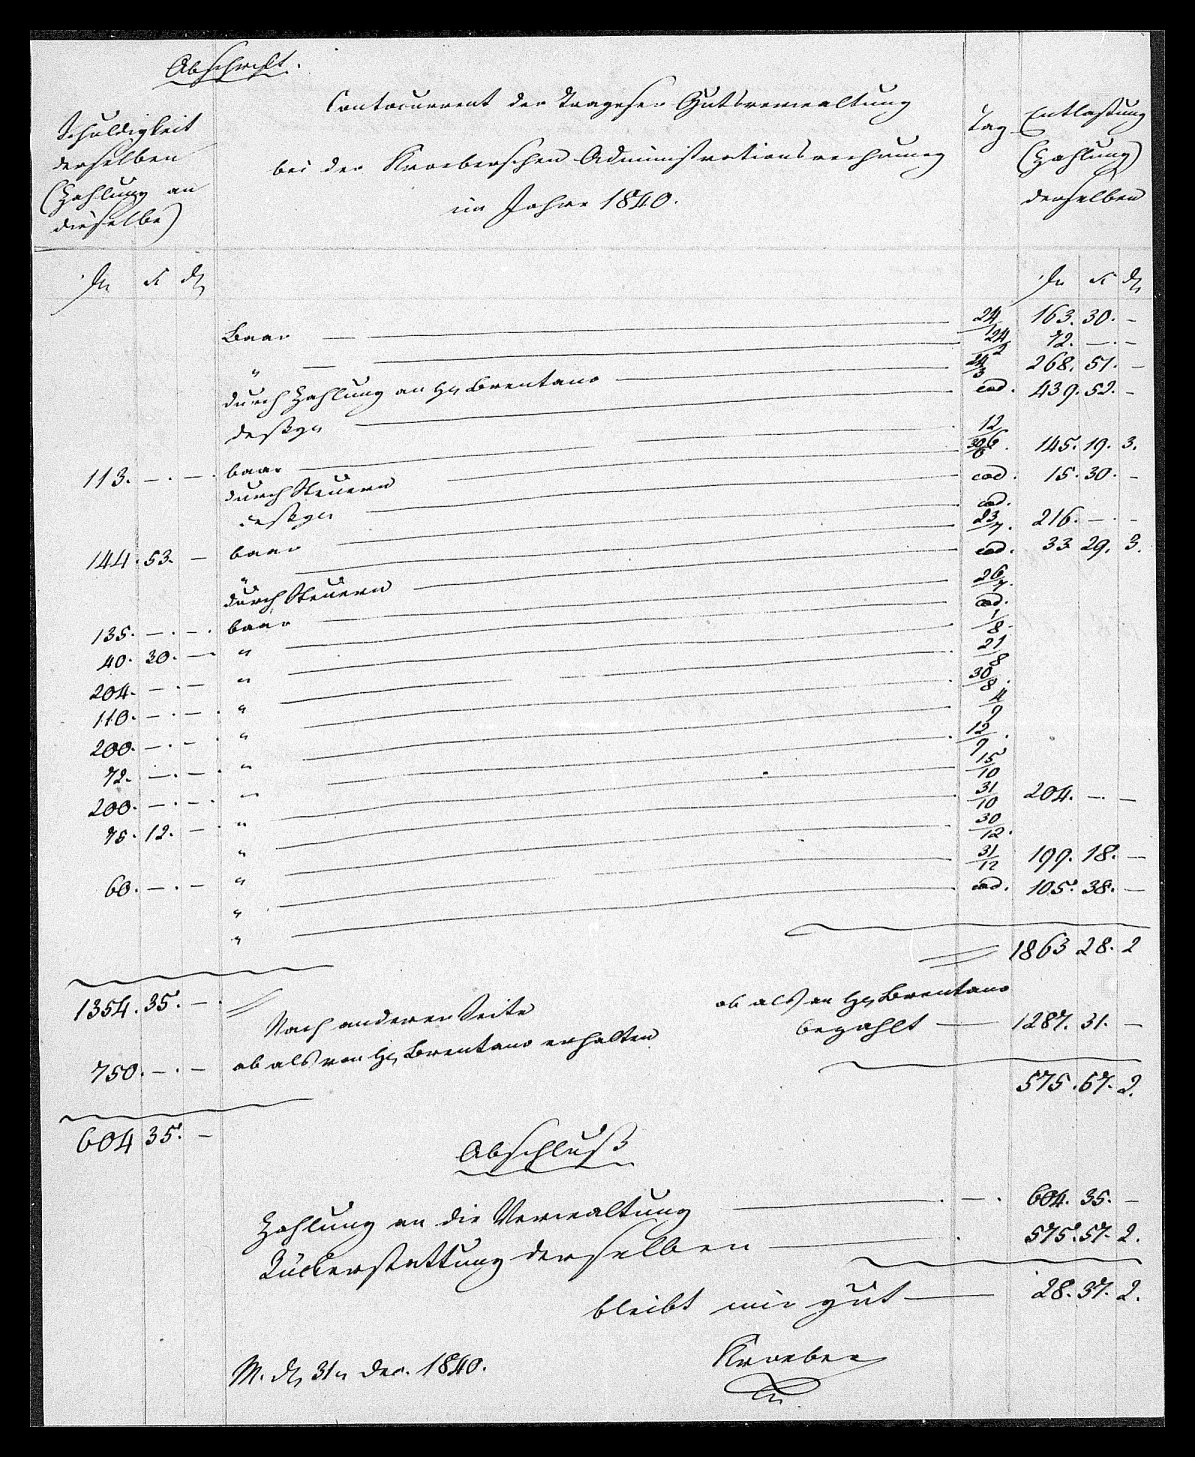 Abschrift.
Schuldigkeit
derselben
(Zahlung an
dieselbe)
Contocurrent der Trageser Gutsverwaltung
bei der Kroeberschen Administrationsrechnung
im Jahre 1840.
Tag
Entlastung
(Zahlung)
derselben
Baar 24/1 163. 30. –
" 24/2 72. – . –
durch Zahlung an H Brentano 24/3 268. 51. –
desgl eod. 439. 52. –
113. – . – . baar 12/6
durch Steuern 30/6 . 145. 19. 3.
desgl eod. 15. 30. –
144. 53. – baar eod.
" 23/7. 216. – . –
durch Steuern eod. 33 29. 3.
135. – . – . baar 26/7.
40. 30. – . " eod.
204. – . – " 1/8.
110. – . – . " 21/8
200. – . – . " 30/8.
72. – . – . " 4/9
200. – . – . " 12/9.
75. 12. – . " 15/10
" 31/10 204. – . –
60. – . – " 30/12.
" 31/12 199. 18. –
" eod. 105. 38. –
1863 28. 2
1354. 35. – .
Nach anderer Seite
ab als an H Brentano
bezahlt — 1287. 31. –
750. – . – ab als von H Brentano erhalten
575. 57. 2.
604 35. –
Abschluß
Zahlung an die Verwaltung — . – . 604. 35. –
Rückerstattung derselben — . 575. 57. 2.
bleibt mir gut — 28. 37. 2.
M. d 31n Dec. 1840.
Kroeber